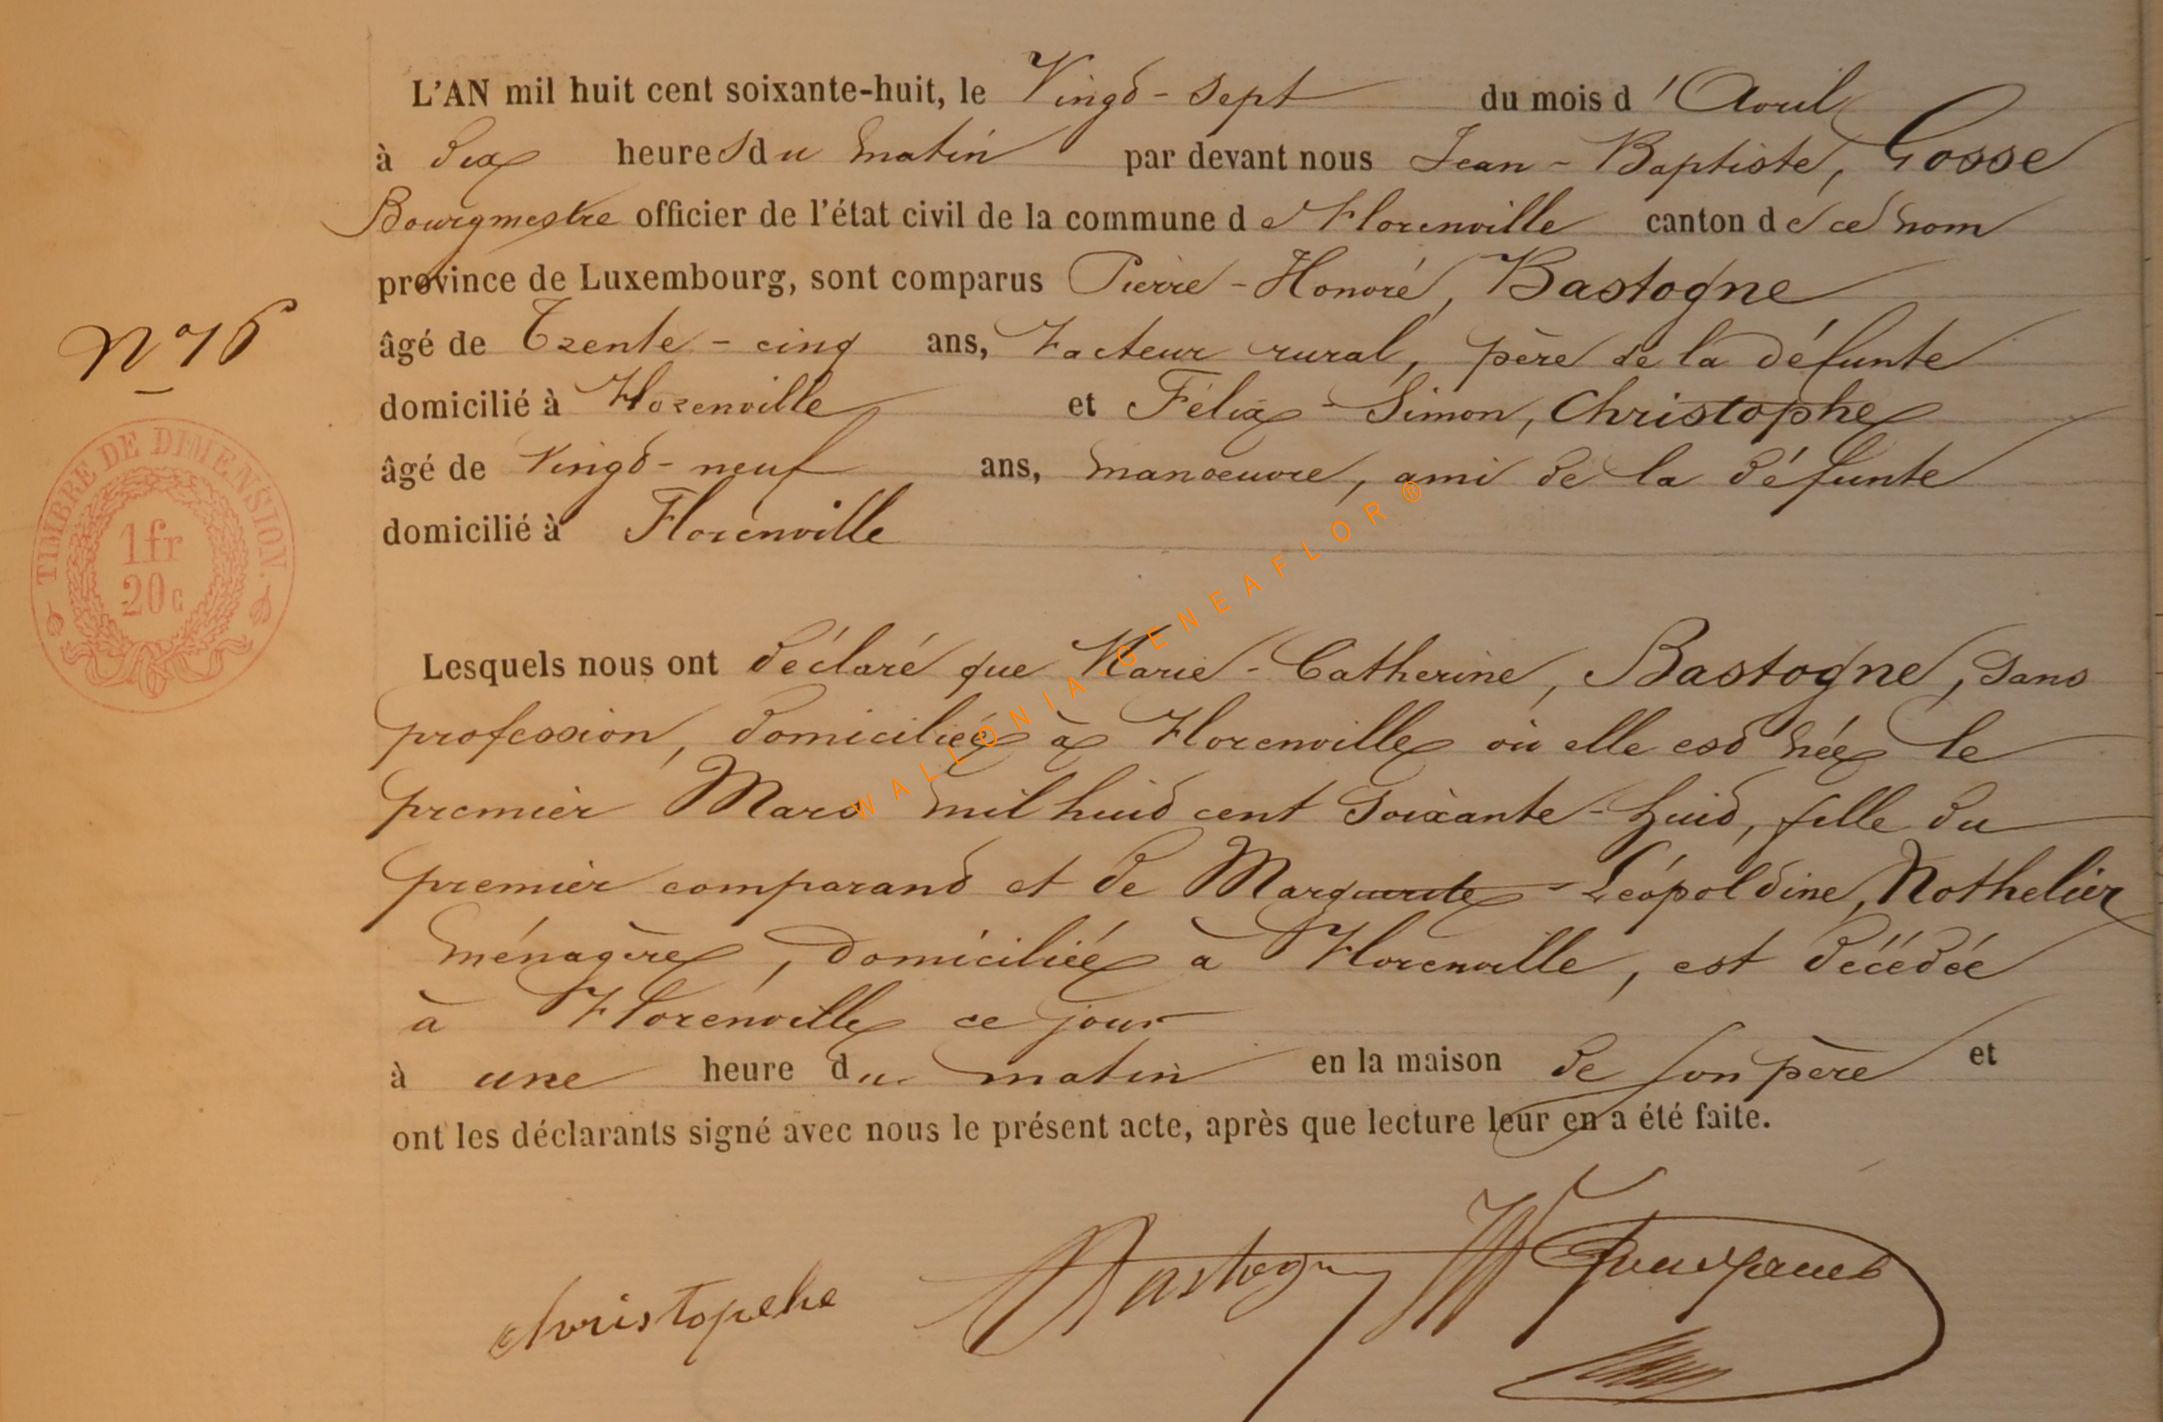 L'AN mil huit cent soixante-huit, le Vingt-sept du mois d'Avril
à dix heures du matin par devant nous Jean-Baptiste, Gosse
Bourgmestre officier de l'état civil de la commune de Florenville canton de ce nom
province de Luxembourg, sont comparus Pierre-Honoré, Bastogne
N° 16
âgé de Trente-cinq ans, facteur rural, père de la défunte
domicilié à Florenville et Félix-Simon, Christophe
âgé de Vingt-neuf ans, manoeuvre, ami de la défunte
domicilié à Florenville
TIMBRE DE DIMENSION.
1fr
20c
WALLONIA GENEAFLOR ®
Lesquels nous ont déclaré que Marie-Catherine, Bastogne, sans
profession, domiciliée à Florenville où elle est née le
premier Mars mil huit cent soixante-huit, fille du
premier comparant et de Marguerite-Léopoldine, Nothelier
ménagère, domiciliée à Florenville, est décédée
à Florenville ce jour
à une heure du matin en la maison de son père et
ont les déclarants signé avec nous le présent acte, après que lecture leur en a été faite.
christophe Bastogne